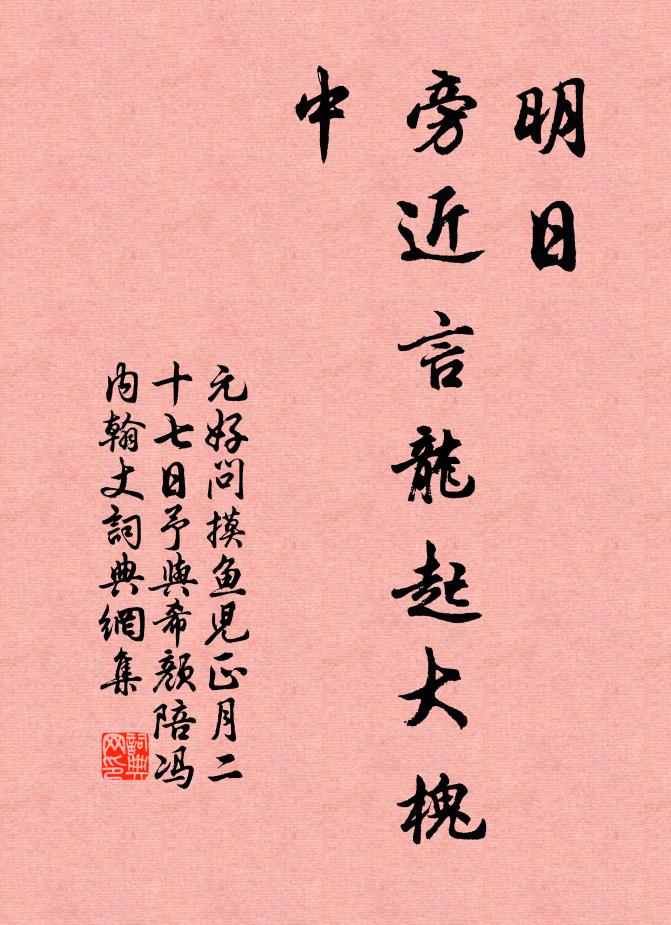 明日
旁近言龍起大槐
中
元好問摸魚児正月二
十七日予與希顏陪冯
内翰丈詞典網集
詞典网印